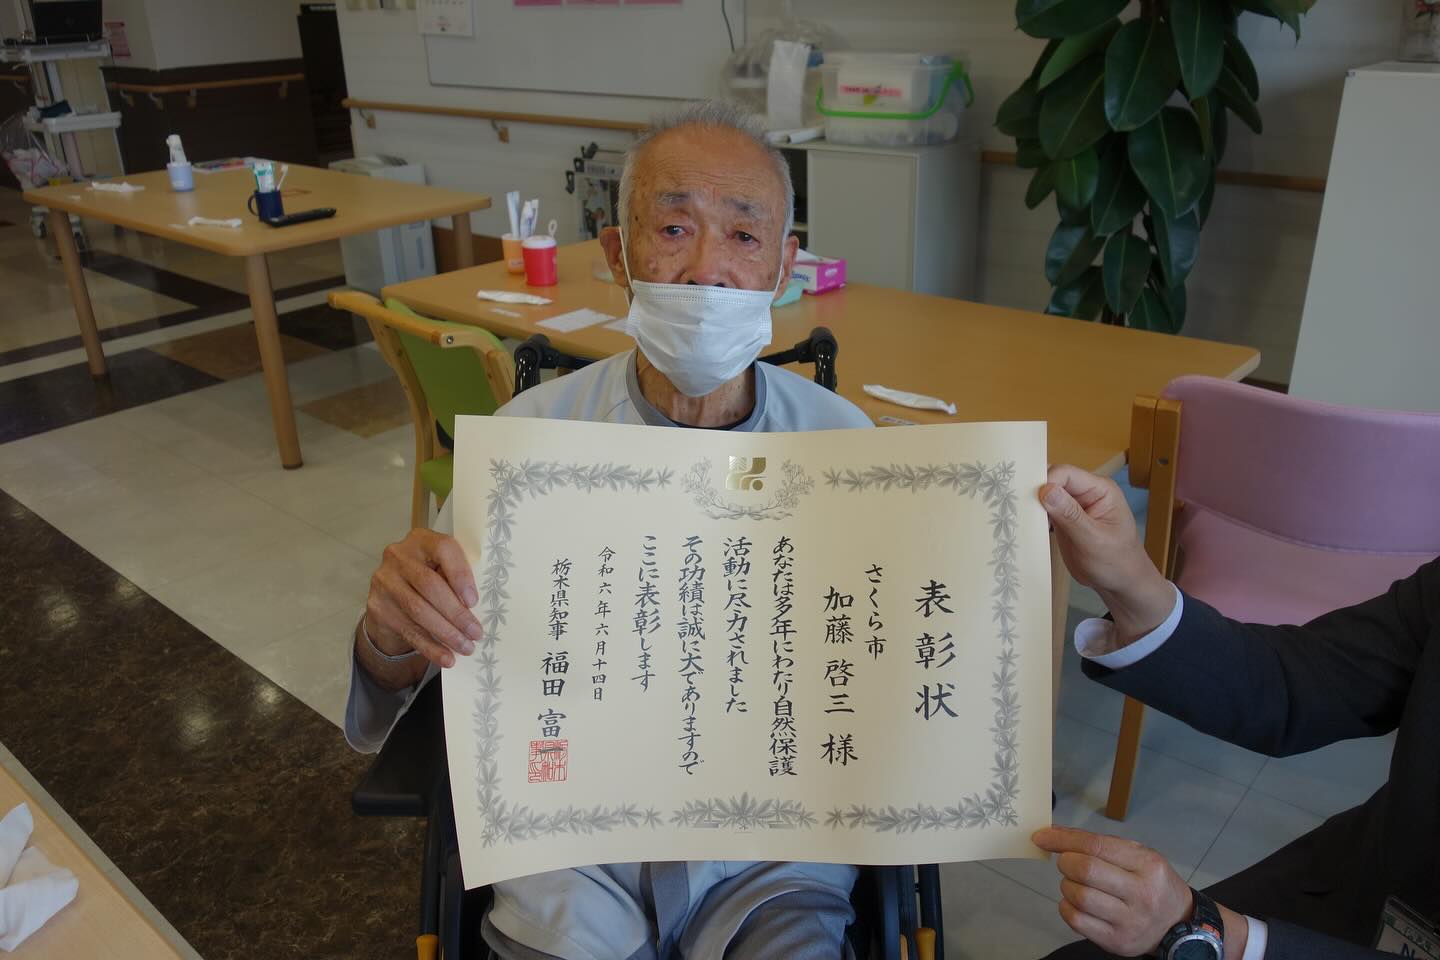 表彰状
さくら市
加藤啓三様
あなたは多年にわたり自然保護
活動に尽力されました
その功績は誠に大でありますので
ここに表彰します
令和六年六月十四日
栃木県知事 福田富一